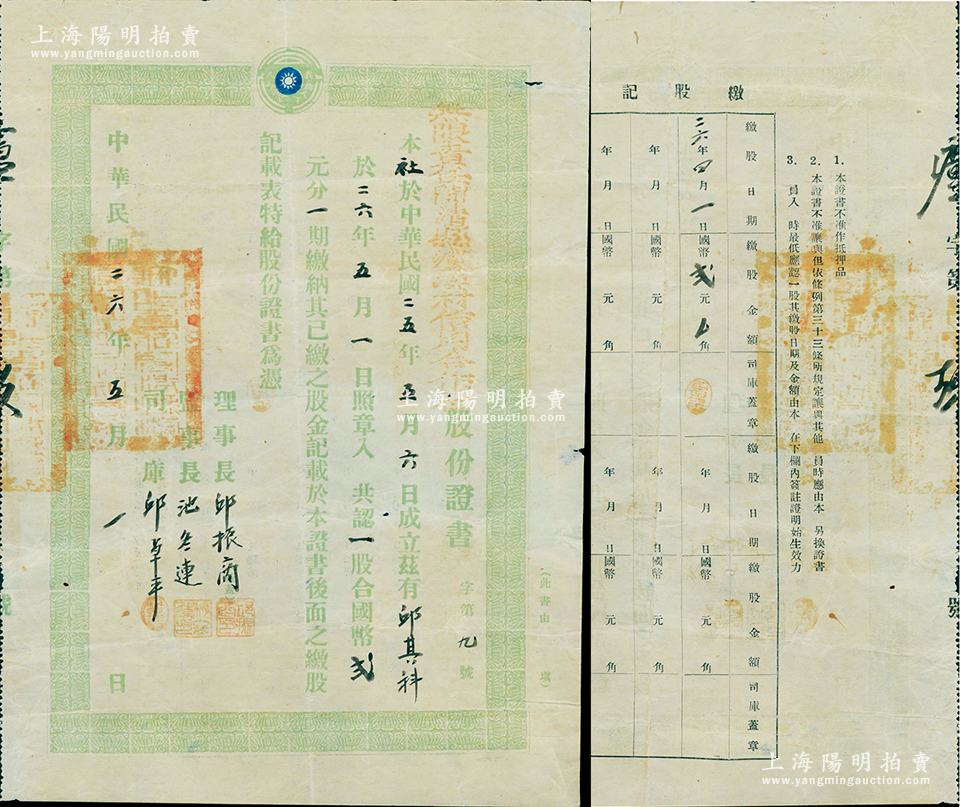 上海陽明拍賣
www.yangmingauction.com
股份證書
字第九號
(此書由 填)
本社於中華民國二五年 月六日成立茲有邱其科
於二六年五月一日照章入 共認一股合國幣弍
元分一期繳納其已繳之股金記載於本證書後面之繳股
記載表特給股份證書為憑
理事長 邱振商
監事長
司庫
中華民國二六年五月一日
字第
號
上海陽明拍賣
www.yangmingauction.com
1. 本證書不准作抵押品
2. 本證書不准讓與但依條例第三十三條所規定讓與其他 員時應由本 另換證書
3. 員入 時最低應認一股其繳股日期及金額由本 在下欄內簽註證明始生效力
繳股記
繳股日期 繳股金額 司庫蓋章 繳股日期 繳股金額 司庫蓋章
二六年四月一日 國幣弍元 角 年 月 日 國幣 元 角
年 月 日 國幣 元 角 年 月 日 國幣 元 角
年 月 日 國幣 元 角 年 月 日 國幣 元 角
字第
號
上海陽明拍賣
www.yangmingauction.com